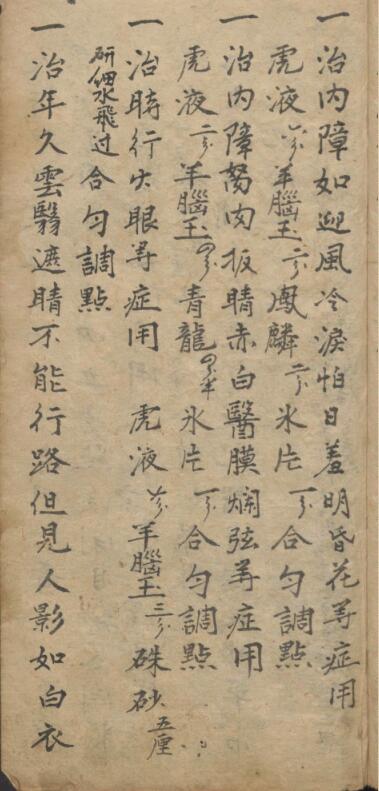 一治内障如迎風冷淚怕日羞明昏花等症用
虎液六分羊腦玉二分鳳麟二分氷片一分合匀調點
一治内障努肉扳睛赤白醫膜爛弦等症用
虎液二分羊腦玉四分青龍四分半氷片一分合匀調點
一治時行火眼等症用 虎液六分羊腦玉三分硃砂五厘
研細水飛过合匀調點
一治年久雲翳遮睛不能行路但見人影如白衣